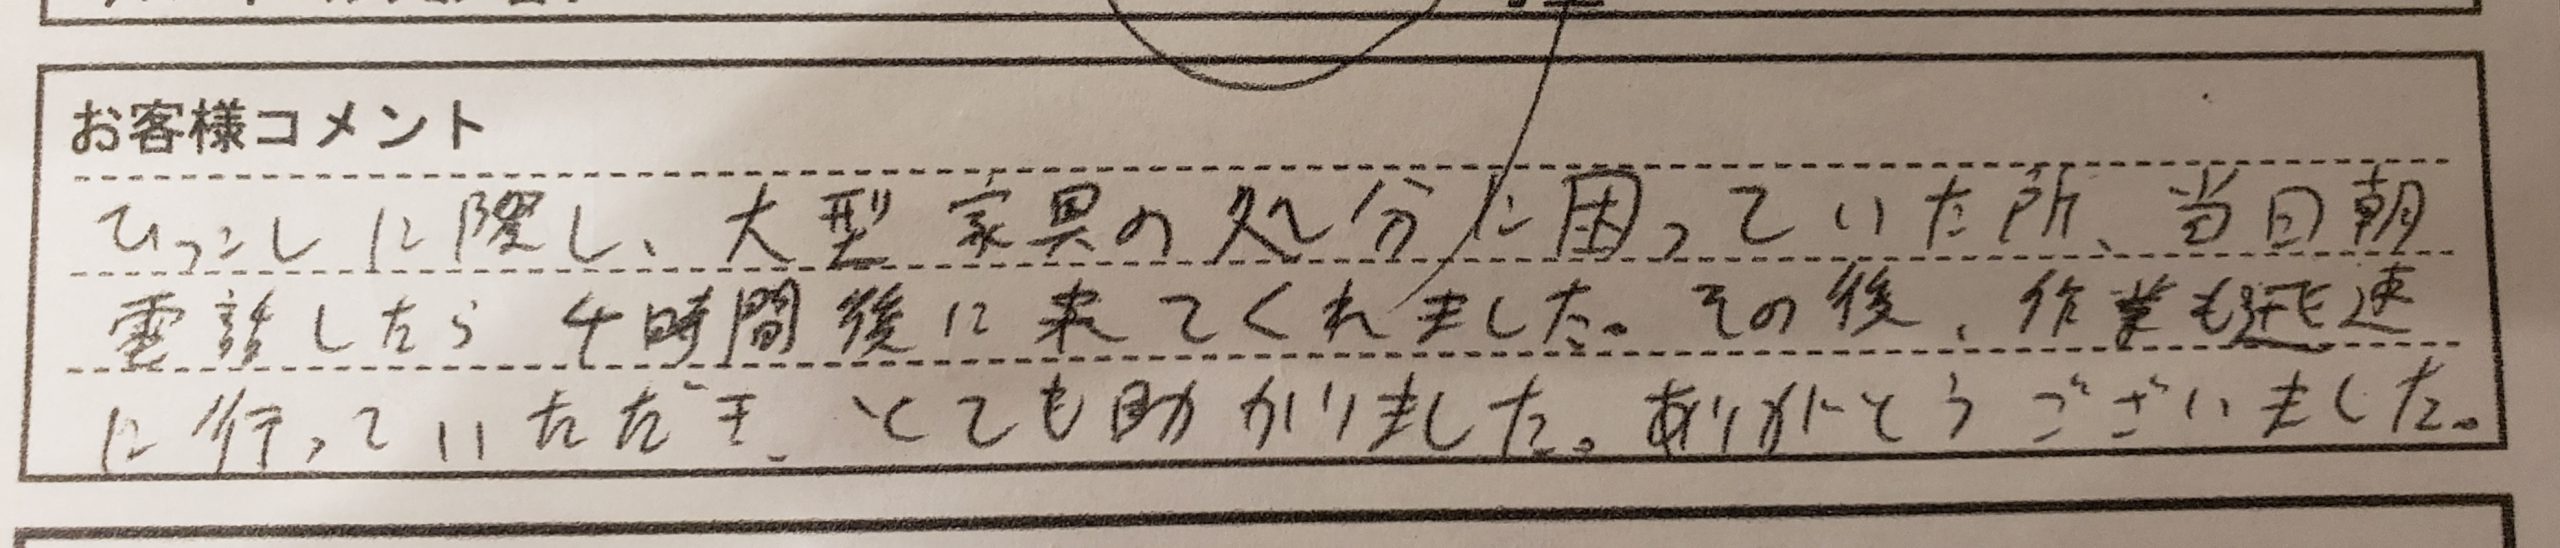 お客様コメント
ひっこしに際し、大型家具の処分に困っていた所、当日朝
電話したら4時間後に来てくれました。その後、作業も迅速
に行っていただき、とても助かりました。ありがとうございました。